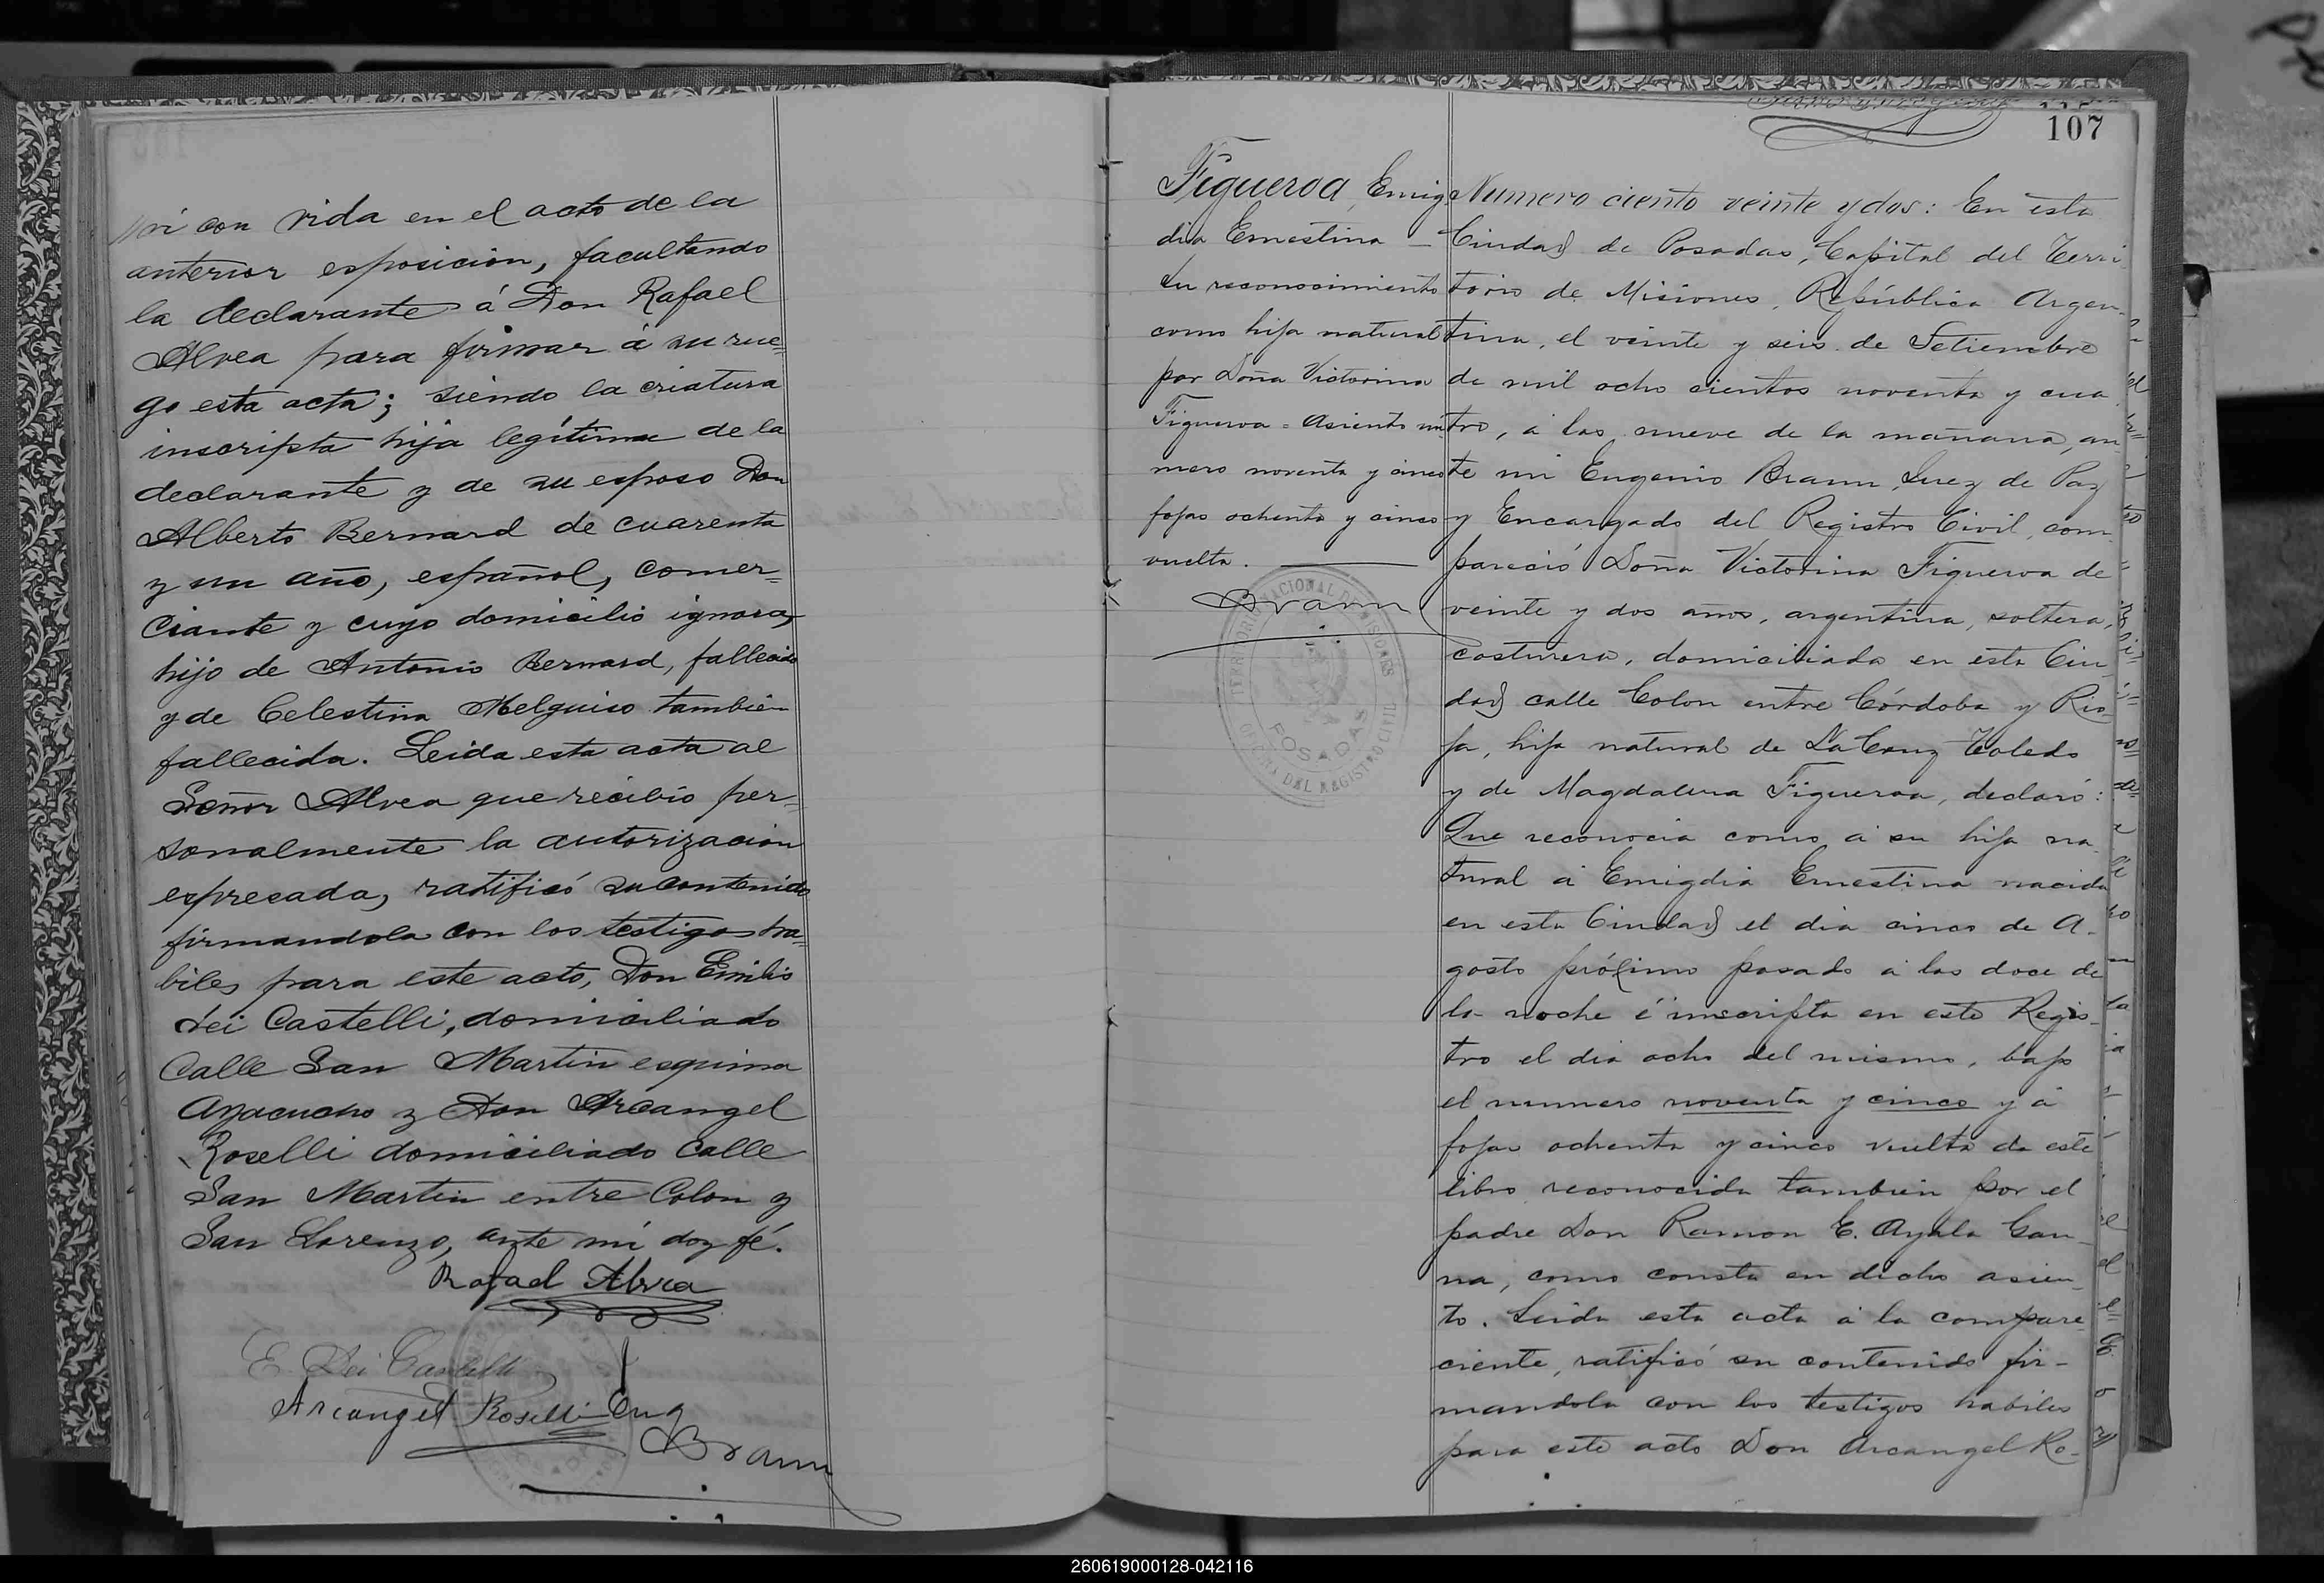 ví con vida en el acto de la
anterior esposicion, facultando
la declarante á Don Rafael
Alvea para firmar á su rue=
go esta acta; siendo la criatura
inscripta hija legítima de la
declarante y de su esposo Don
Alberto Bernard de cuarenta
y un año, español, comer=
ciante y cuyo domicilio ignora,
hijo de Antonio Bernard, fallecido
y de Celestina Melguiso tambien
fallecida. Leida esta acta al
Señor Alvea que recibió per=
sonalmente la autorizacion
espresada, ratificó su contenido
firmandola con los testigos ha=
biles para este acto, Don Emilio
dei Castelli, domiciliado
Calle San Martin esquina
Ayacucho y Don Arcangel
Roselli domiciliado Calle
San Martin entre Colon y
San Lorenzo, ante mí doy fé.
Rafael Alvea
E. Dei Castelli
Arcangel Roselli Eug
Braun
107
Figueroa, Emig
dia Ernestina —
Su reconocimiento
como hija natural
por Doña Victorina
Figueroa = Asiento nú
mero noventa y cinco
fojas ochenta y cinco
vuelta.
Braun
TERRITORIO NACIONAL DE MISIONES
POSADAS
OFICINA DEL REGISTRO CIVIL
Numero ciento veinte y dos: En esta
Ciudad de Posadas, Capital del Terri-
torio de Misiones, República Argen-
tina, el veinte y seis de Setiembre
de mil ocho cientos noventa y cua
tro, á las nueve de la mañana, an
te mi Eugenio Braun, Juez de Paz
y Encargado del Registro Civil, com
pareció Doña Victorina Figueroa de
veinte y dos años, argentina, soltera,
costurera, domiciliada en esta Ciu
dad calle Colon entre Córdoba y Rio-
ja, hija natural de La Cruz Toledo
y de Magdalena Figueroa, declaró:
Que reconocia como á su hija na-
tural á Emigdia Ernestina nacida
en esta Ciudad el dia cinco de A-
gosto próximo pasado á las doce de
la noche é inscripta en este Regis-
tro el dia ocho del mismo, bajo
el numero noventa y cinco y á
fojas ochenta y cinco vuelta de este
libro reconocida tambien por el
padre Don Ramon E. Ayala Gau-
na, como consta en dicho asien-
to. Leida esta acta á la compare
ciente, ratificó su contenido fir-
mandola con los testigos habiles
para este acto Don Arcangel Ro-
260619000128-042116